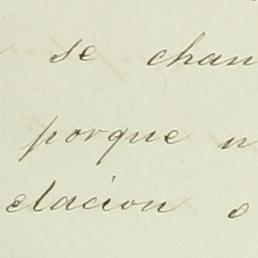 se chan
porque n
elacion o